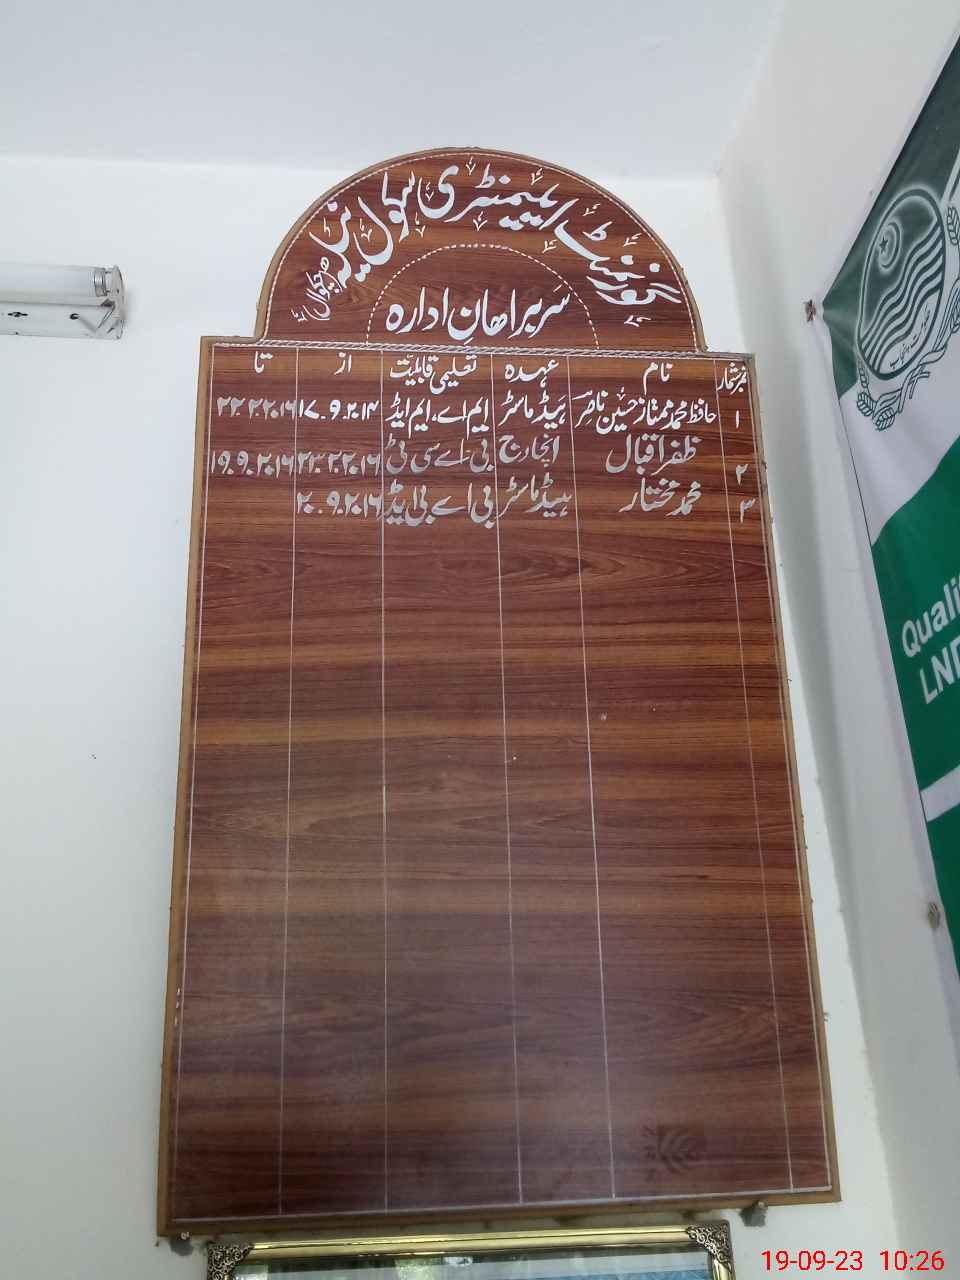 گورنمنٹ ایلیمنٹری سکول نڑالہ ضلع چکوال
سربراھانِ ادارہ
نمبرشمار نام عہدہ تعلیمی قابلیت از تا
۱ حافظ محمد ممتاز حسین ناصر ہیڈ ماسٹر ایم اے، ایم ایڈ ۱۷.۹.۲۰۱۴ ۲۲.۲.۲۰۱۶
۲ ظفر اقبال انچارج بی اے سی ٹی ۲۳.۲.۲۰۱۶ ۱۹.۹.۲۰۱۶
۳ محمد مختار ہیڈ ماسٹر بی اے بی ایڈ ۲۰.۹.۲۰۱۶
حکومت پنجاب
Quali
LND
19-09-23 10:26